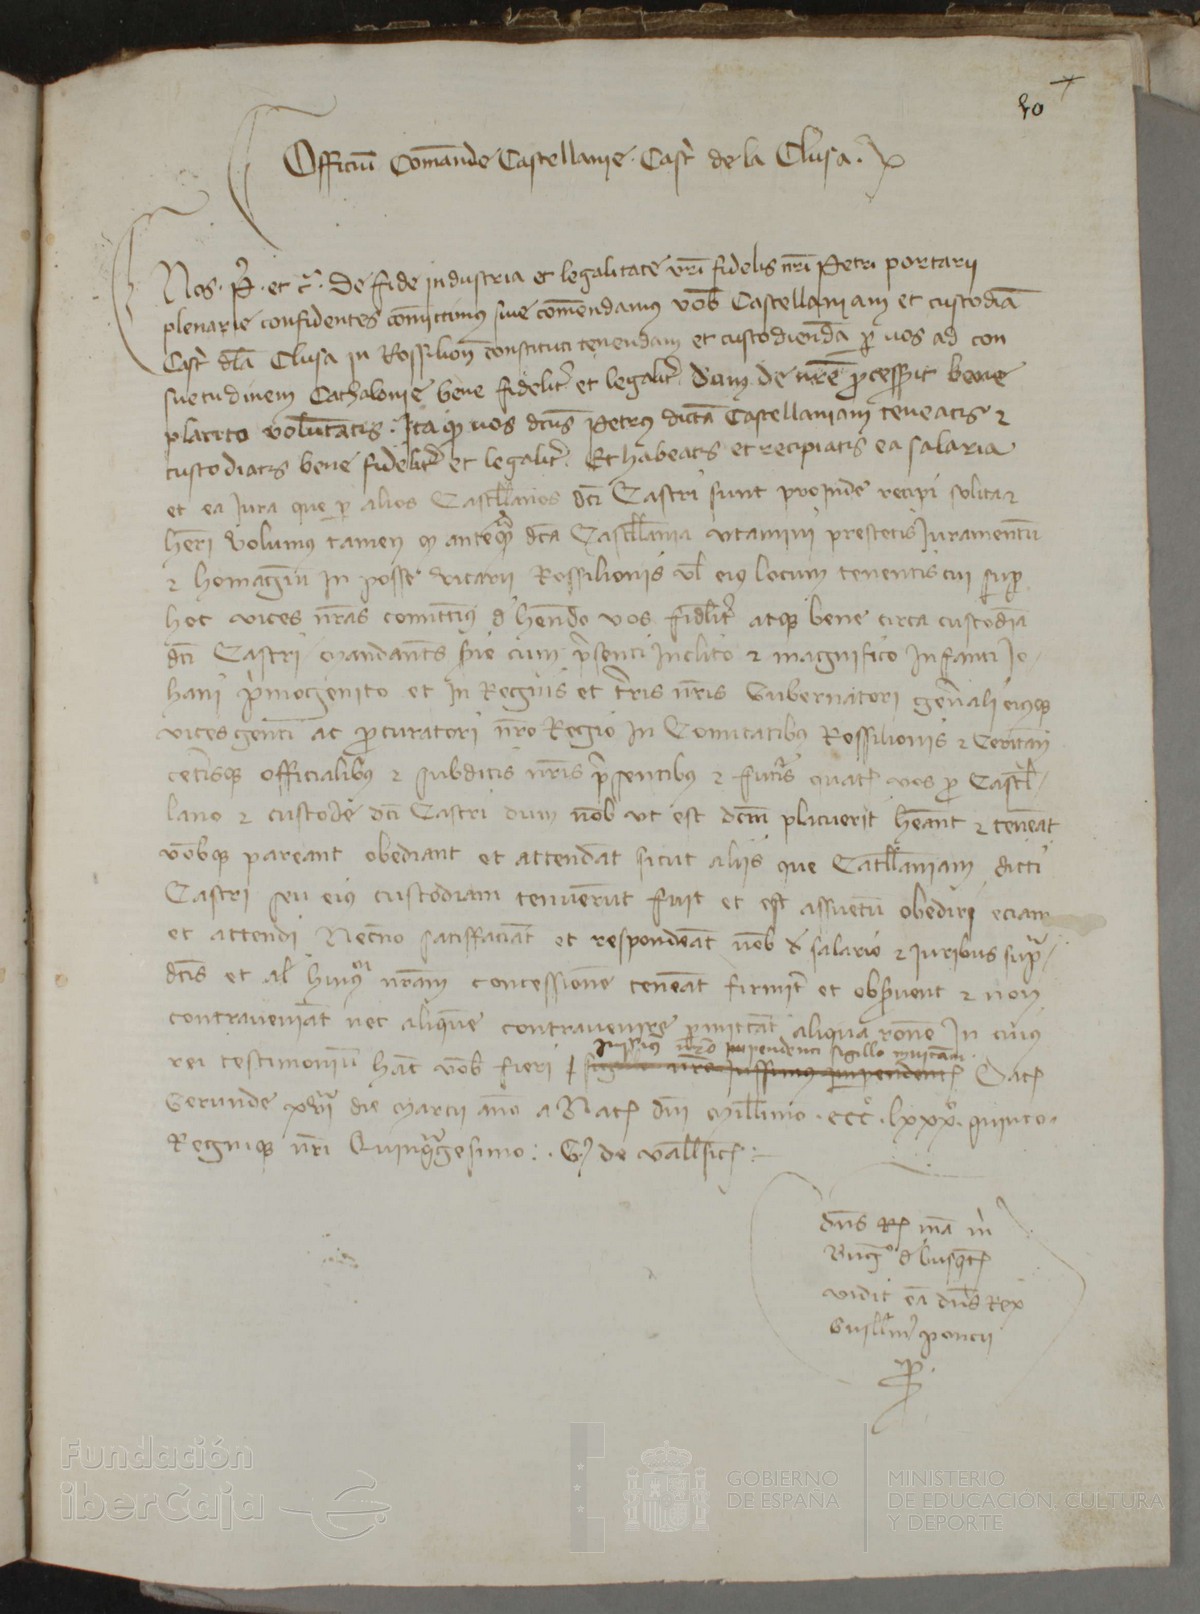 50
Officiu Comande Castellanie Castr de la Clusa
Nos P et c. De fide industria et legalitate vri fidelis nri Petri portarii
plenarie confidentes comittimus sive comendamus vob Castellaniam et custodia
Castr dla Clusa in Rossilion constituti tenendam et custodienda p vos ad con
suetudinem Cathalonie bene fidelit et legalit Dum de nre pcesserit bene
placito voluntatis Ita q vos dcus Petrus dicta Castellaniam teneatis et
custodiatis bene fidelit et legalit Et habeatis et recipiatis ea salaria
et ea jura que p alios Castllanos dci Castri sunt proinde recipi solita et
heri Volumus tamen q anteq dca Castllania utamini prestetis Juramentu
et homagiu in posse vicarii Rossilionis vl eius locum tenentis cui sup
hoc vices nras comittimus d hendo vos fidlit atq bene circa custodia
dci Castri mandantes sie cum psenti Inclito et magnifico Infanti Jo
hani pmogenito et in Regnis et tris nris Gubernatori genali eiusq
vices genti ac pcuratori nro Regio in Comitatibus Rossilionis et Ceritan
cetisq officialibus et subditis nris psentibus et futuris quat vos p Castl
lano et custode dci Castri dum nob ut est dcm placuerit heant et teneat
vobq pareant obediant et attendat sicut aliis que Catllaniam dicti
Castri seu eius custodiam tenuerut fuit et est assuetu obediri eciam
et attendi Necno satisffaciat et respondeat vob d salario et juribus sup
dcis et al huius nram concessione teneat firmit et obsvent et non
contraveniat nec aliquem contravenire pmittat aliqua rone In cuius
jussimus nro inpendenti sigillo munitam
rei testimoniu hac vob fieri sigillo nro jussimus inpendent Dat
Gerunde xviii die marcii ano a Nat dni millimo ccc lxxx quinto
Regniq nri Quinquagesimo G de vallsic
dns Rex ma m
Bug d busqt
vidit ea dns Rex
Guillm poncii
p
Fundación
iberCaja
GOBIERNO
DE ESPAÑA
MINISTERIO
DE EDUCACIÓN, CULTURA
Y DEPORTE